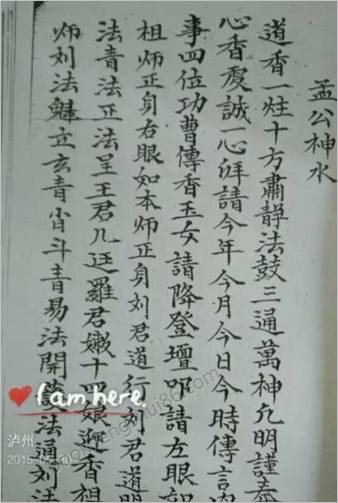 孟公神水
道香一炷十方肅静法鼓三通萬神允明謹奉
心香虔誠一心拜請今年今月今日今時傳言
事四位功曹傳香玉女請降登壇叩請左眼
祖师正身右眼如本师正身刘君道行刘君道明
法青法正法呈王君几廷羅君嫩十四娘迎香相
师刘法魁立玄青肖斗青易法開 法通刘法
I am here.
泸州